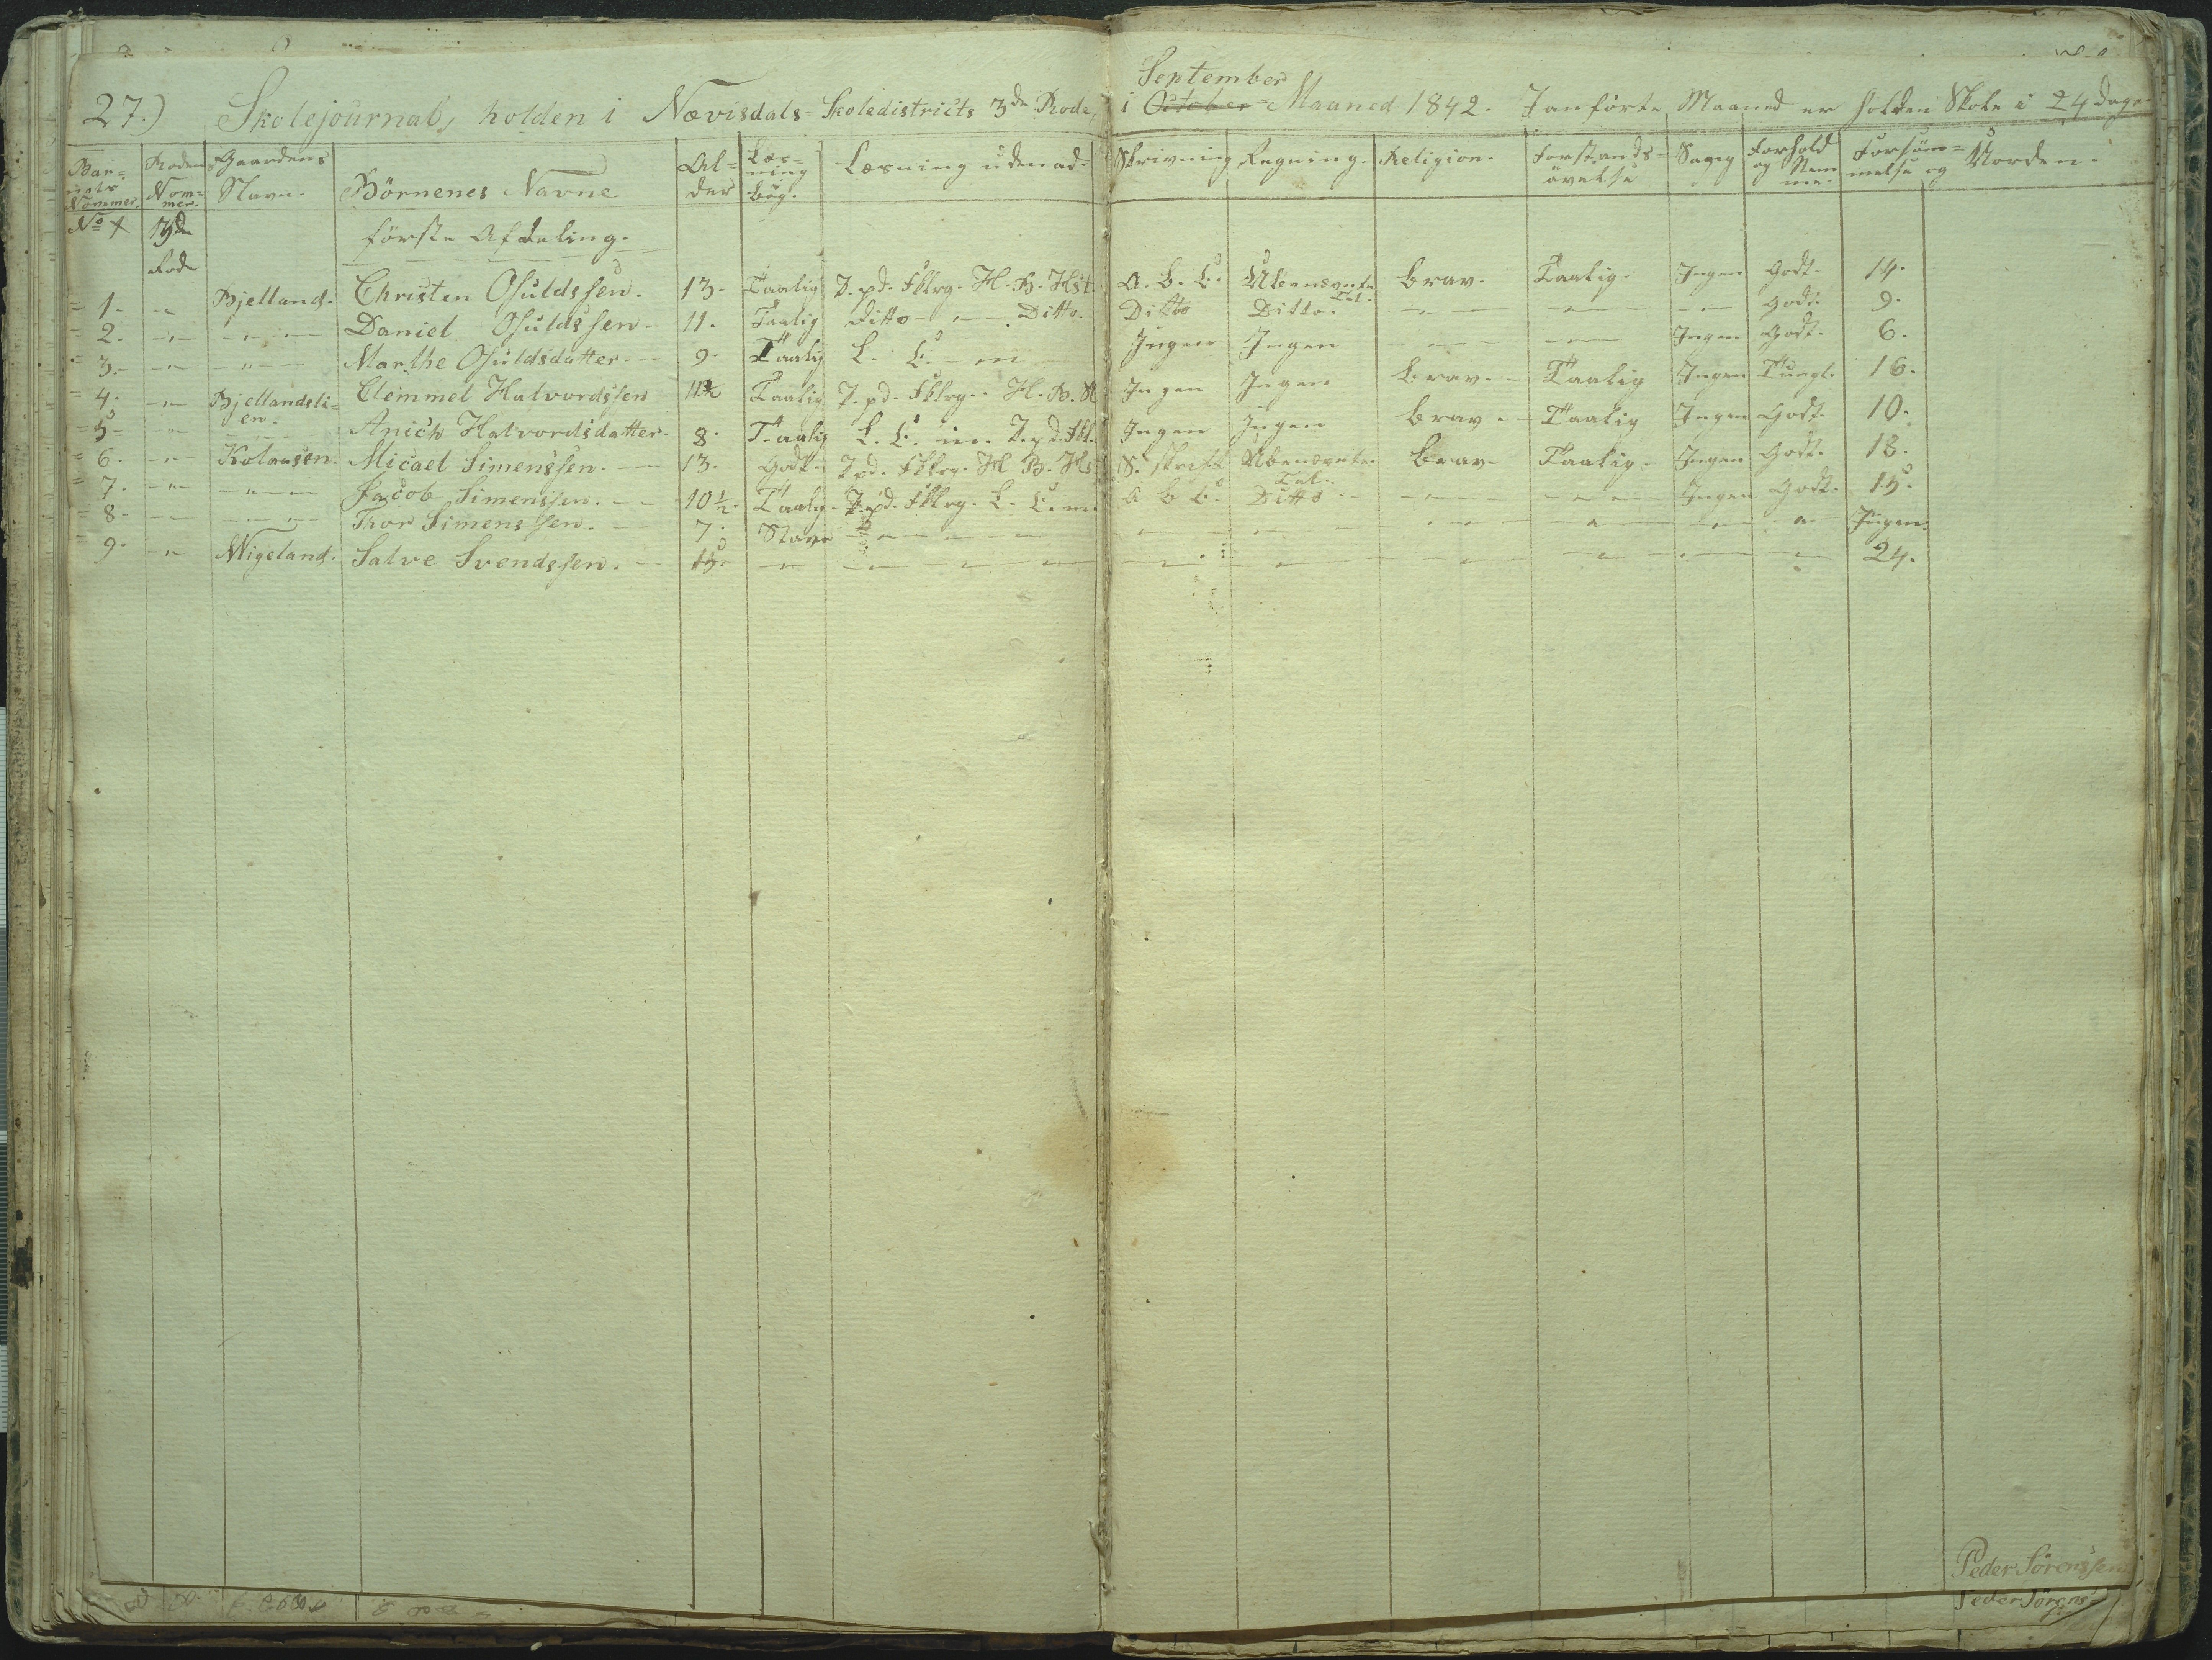 27.) Skolejournal, holden i Nævisdals-Skoledistricts 3de Rode, i September October-Maaned 1842. I anførte Maaned er holden Skole i 24 dage
Bar=nets Nommer. Rodens Nom=mer. Gaardens Navn. Börnenes Navne Al=der Læs=ning i bog. Læsning udenad. Skrivning Regning. Religion. Forstands=övelse Sang Forhold og Nem me. Forsöm=melse og Uorden.
No 3de Rode förste Afdeling.
1. -"- Bjelland. Christen Osuldssen. 13. Taalig T. pd. Fklrg. H. B. Hst. A. b. c. Ubenævnte Tal. brav. Taalig. Ingen Godt. 14.
2. -"- -"- Daniel Osuldssen 11. Taalig Ditto -"- Ditto. Ditto Ditto. -"- -"- -"- Godt. 9.
3. -"- -"- Marthe Osuldsdatter. 9. Taalig L. C. m Ingen Ingen -"- -"- Ingen Godt. 6.
4. -"- Bjellandsli=en. Clemmet Halvordssen Taalig T. pd. Fklrg. H. B. Ingen Ingen brav. Taalig Ingen Tungt. 16.
5. -"- Anich Halvordsdatter. 8. Taalig L. C. m. T. pd. Fkl. Ingen Ingen brav. Taalig Ingen Godt. 10.
6. -"- Kolaasen. Micael Simenssen. 13. Godt. T. pd. Fklrg. H. B. Hs S. skrift Ubenævnte Tal. brav Taalig. Ingen Godt. 18.
7. -"- -"- Jacob Simenssen. 10 1/2. Taalig. T. pd. Fklrg. L. C. m. A b c. Ditto -"- -"- Ingen Godt. 15.
8. -"- -"- Thor Simenssen. 7. Stave -"- -"- -"- -"- -"- -"- -"- Ingen.
9. -"- Migeland. Salve Svendssen. 15. -"- -"- -"- -"- -"- -"- -"- -"- 24.
Peder Sörenssen
Peder Sörens